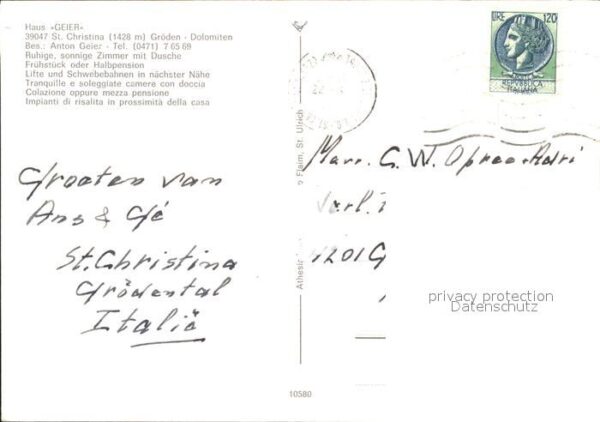 Haus »GEIER«
39047 St. Christina (1428 m) Gröden - Dolomiten
Bes.: Anton Geier - Tel. (0471) 7 65 69
Ruhige, sonnige Zimmer mit Dusche
Frühstück oder Halbpension
Lifte und Schwebebahnen in nächster Nähe
Tranquille e soleggiate camere con doccia
Colazione oppure mezza pensione
Impianti di risalita in prossimità della casa
LIRE 120
REPVBBLICA
ITALIANA
Groeten van
Ans & Gé
St. Christina
Grödental
Italië
Flaim, St. Ulrich
Athesia
G. W.
1201G
privacy protection
Datenschutz
10580